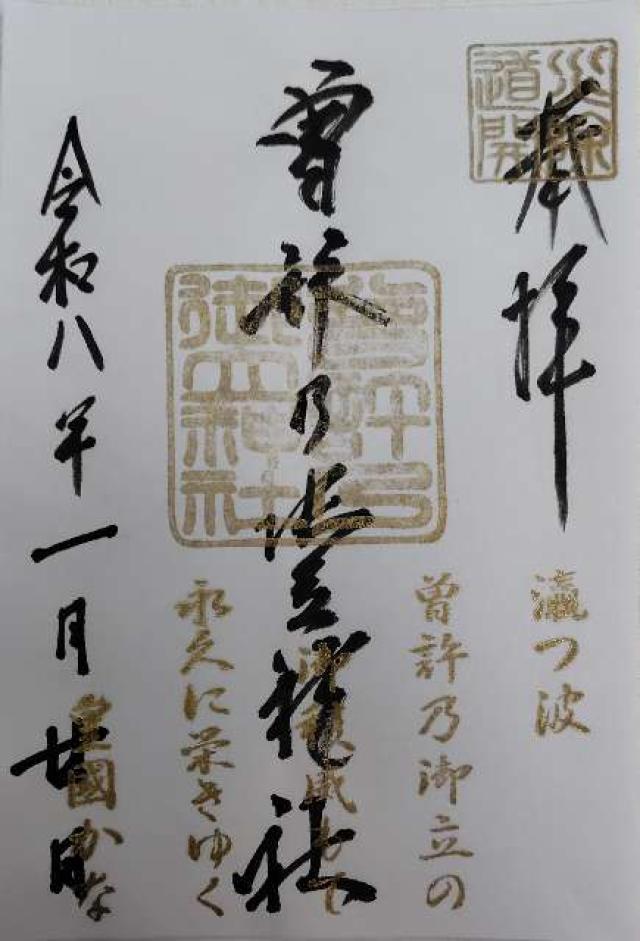 奉拝
災除
道開
曽許乃御立神社
曽許乃
御立神社
令和八年一月廿日
瀛つ波
曽許乃御立の
御稜威もて
永久に栄きゆく
皇國かな